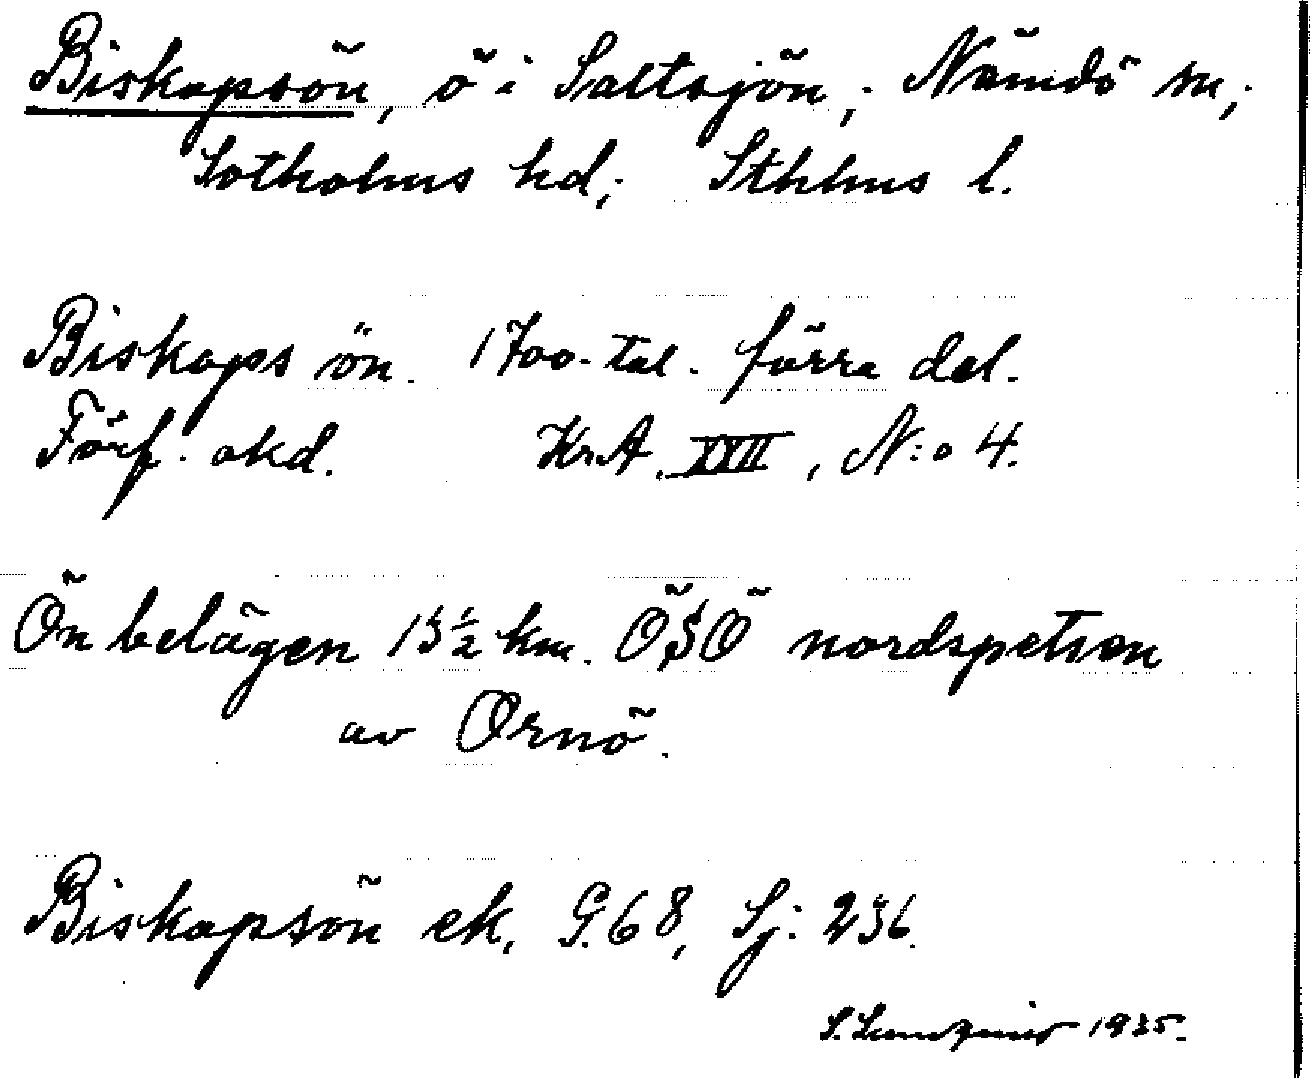 Biskopsön, ö i Saltsjön; Nämdö sn;
Sotholms hd; Sthlms l.
Biskops ön. 1700-tal. förra del.
Förf. okd. Kr.A. XVII, N:o 4.
Ön belägen 13½ km. ÖSÖ nordspetsen
av Ornö.
Biskopsön ek. G.68, Sj: 236.
1935.